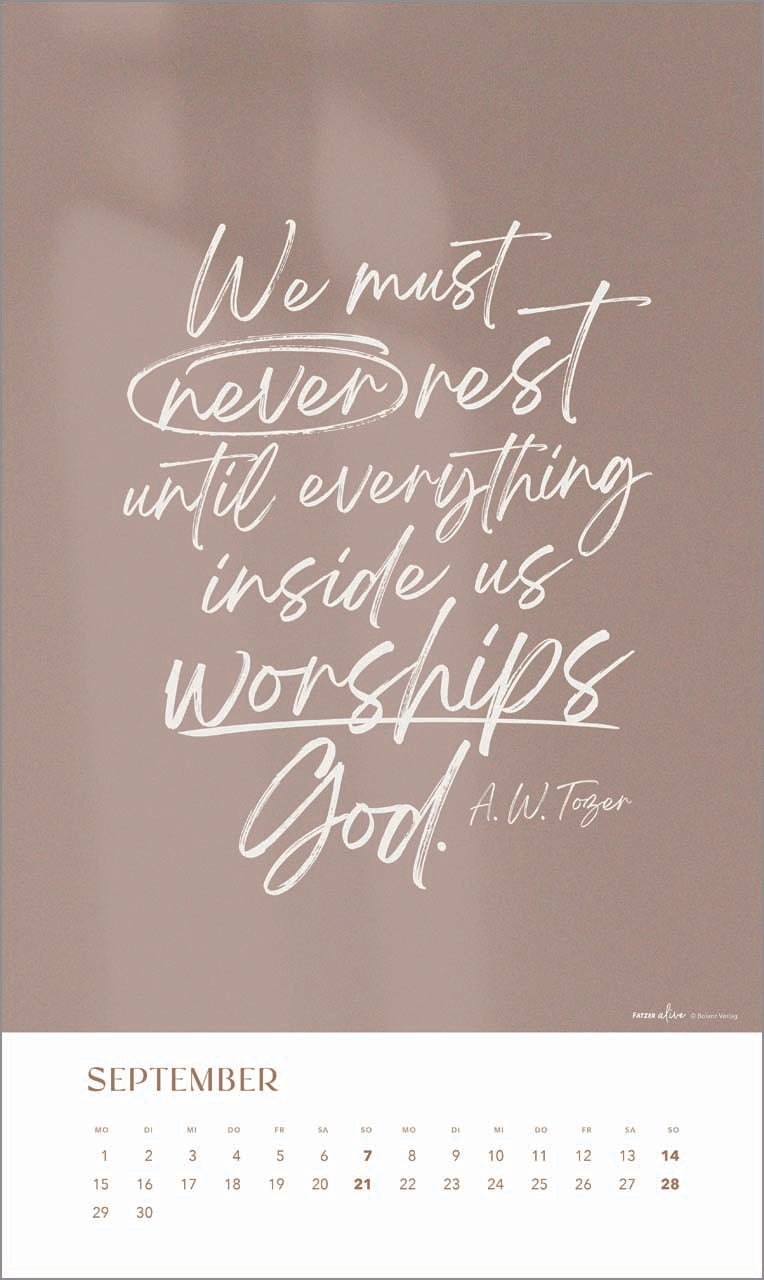 We must
never rest
until everything
inside us
worships
God.
A. W. Tozer
FATZER alive © Bolanz Verlag
SEPTEMBER
MO DI MI DO FR SA SO MO DI MI DO FR SA SO
1 2 3 4 5 6 7 8 9 10 11 12 13 14
15 16 17 18 19 20 21 22 23 24 25 26 27 28
29 30